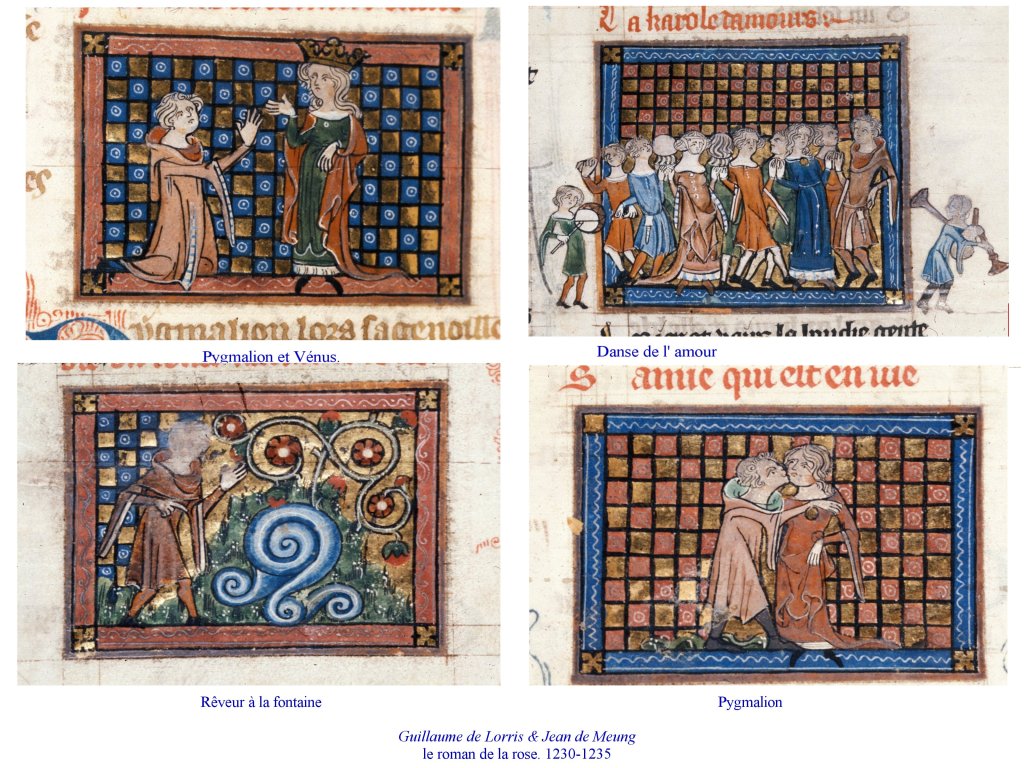 La karole damours
pygmalion lors sagenoille
Pygmalion et Vénus.
Danse de l' amour
S amie qui est en vie
Rêveur à la fontaine
Pygmalion
Guillaume de Lorris & Jean de Meung
le roman de la rose. 1230-1235